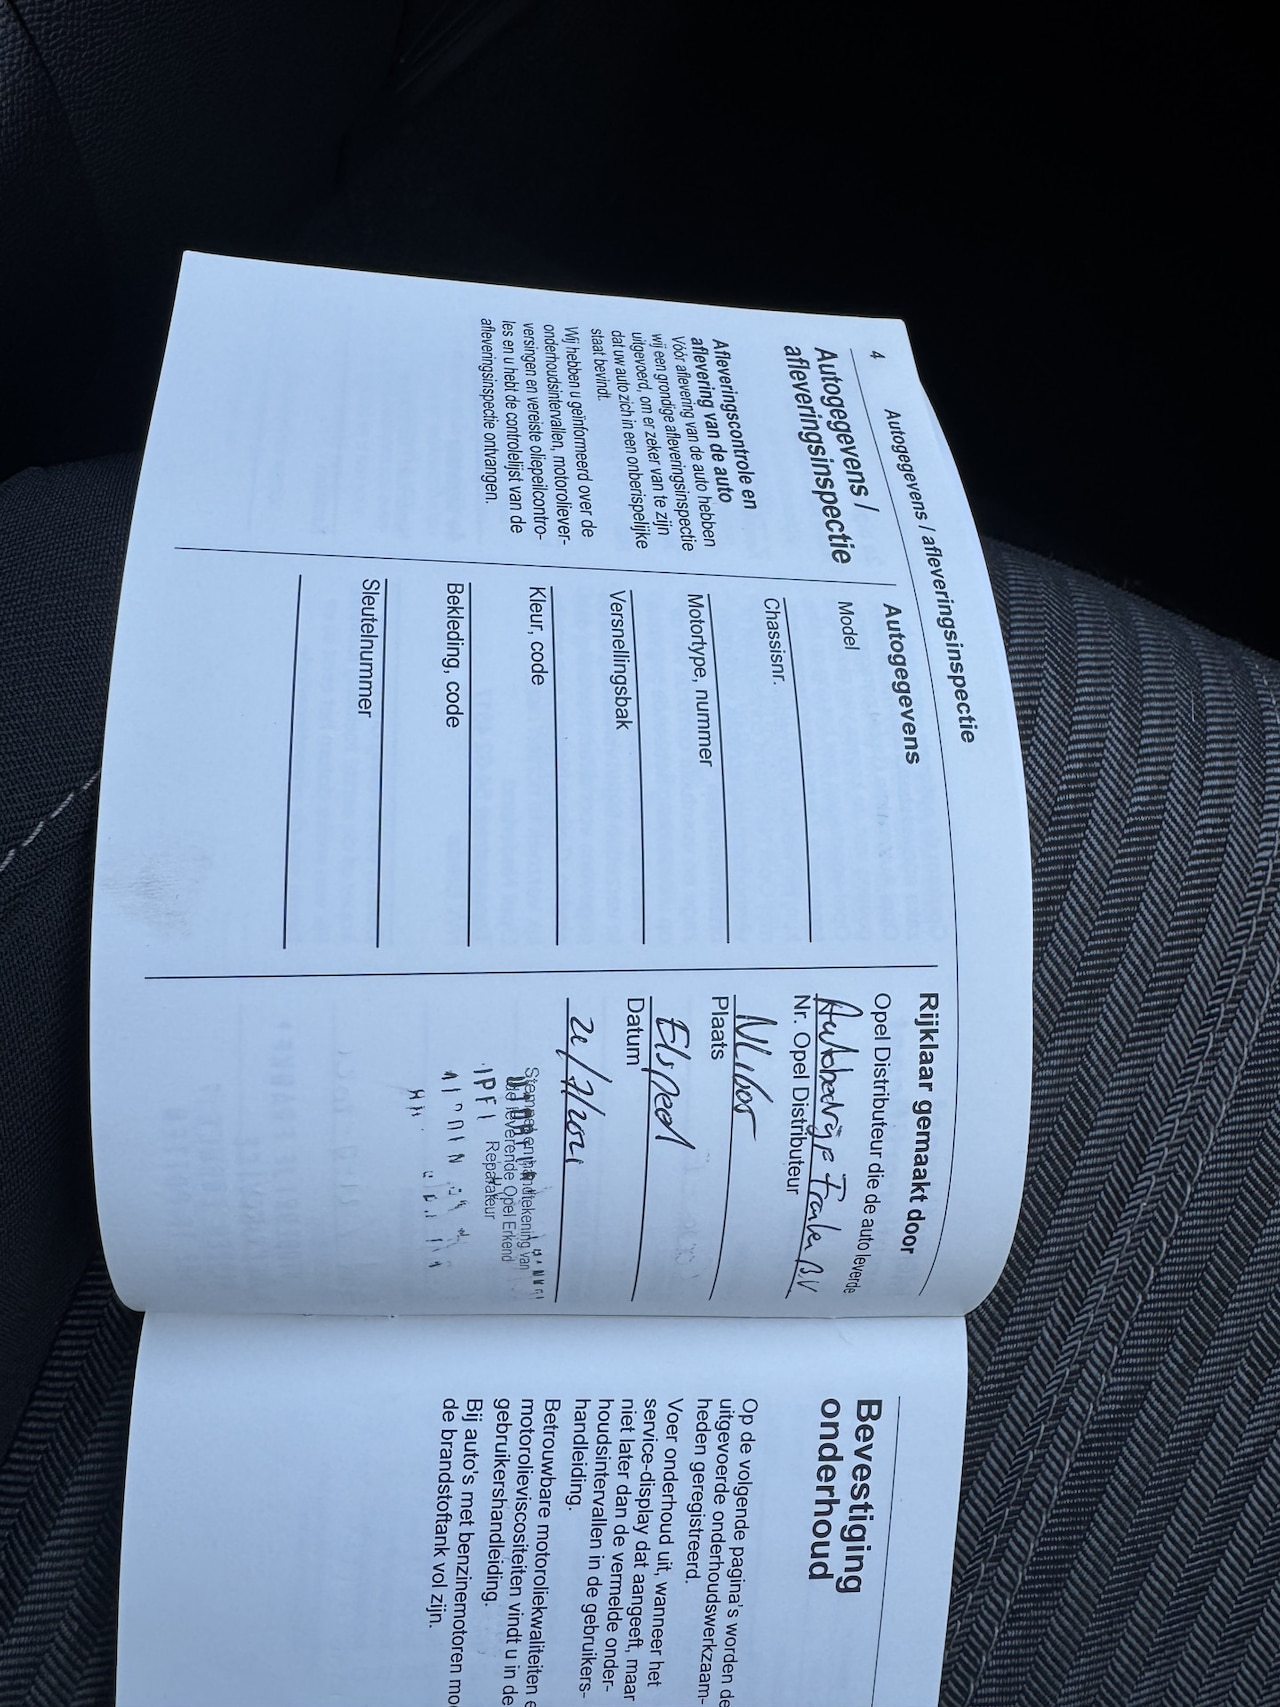 4
Autogegevens / afleveringsinspectie
Autogegevens /
afleveringsinspectie
Afleveringscontrole en
aflevering van de auto
Vóór aflevering van de auto hebben
wij een grondige afleveringsinspectie
uitgevoerd, om er zeker van te zijn
dat uw auto zich in een onberispelijke
staat bevindt.
Wij hebben u geïnformeerd over de
onderhoudsintervallen, motoroliever-
versingen en vereiste oliepeilcontro-
les en u hebt de controlelijst van de
afleveringsinspectie ontvangen.
Autogegevens
Model
Chassisnr.
Motortype, nummer
Versnellingsbak
Kleur, code
Bekleding, code
Sleutelnummer
Rijklaar gemaakt door
Opel Distributeur die de auto leverde
Autobedrijf B.V
Nr. Opel Distributeur
Plaats
Elspeet
Datum
/7/2021
Stempel en handtekening van
de leverende Opel Erkend
Reparateur
Bevestiging
onderhoud
Op de volgende pagina's worden de
uitgevoerde onderhoudswerkzaam-
heden geregistreerd.
Voer onderhoud uit, wanneer het
service-display dat aangeeft, maar
niet later dan de vermelde onder-
houdsintervallen in de gebruikers-
handleiding.
Betrouwbare motoroliekwaliteiten e
motorolieviscositeiten vindt u in de
gebruikershandleiding.
Bij auto's met benzinemotoren mo
de brandstoftank vol zijn.